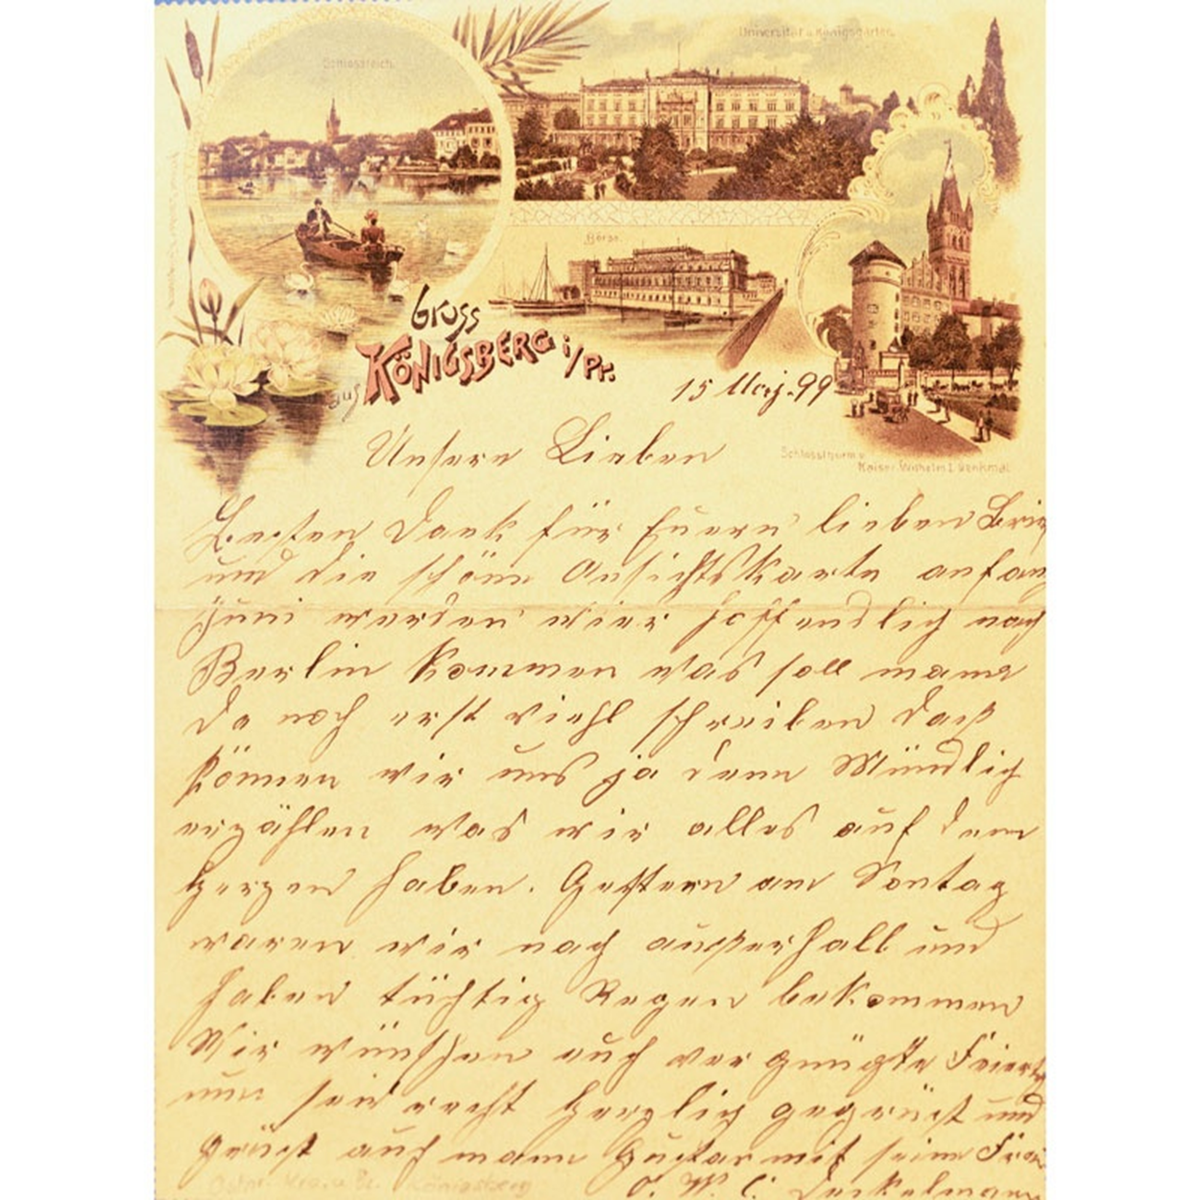 Schlossteich.
Universität u. Königsgarten.
Börse.
Gruss
aus Königsberg i/Pr.
15 Mai. 99
Schlossthurm u.
Kaiser Wilhelm I. Denkmal
Unsere Lieben
Besten Dank für Euern lieben Brif
und die schöne Ansichtskarte anfan
Juni werden wier hoffendlich nach
Berlin kommen was soll mann
da noch erst viehl schreiben daß
können wir uns ja denn Mündlich
erzählen was wir alles auf dem
Herzen haben. Gestern am Sontag
waren wir nach außerhalb und
haben tüchtig Regen bekommen
Wir wünschen auch vergnügte Feiert
nun seid recht herzlich gegrüst und
grüst auch mann Gustav mit sein Frau